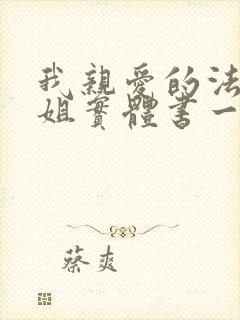 我親愛的法
姐實體書一
蔡爽